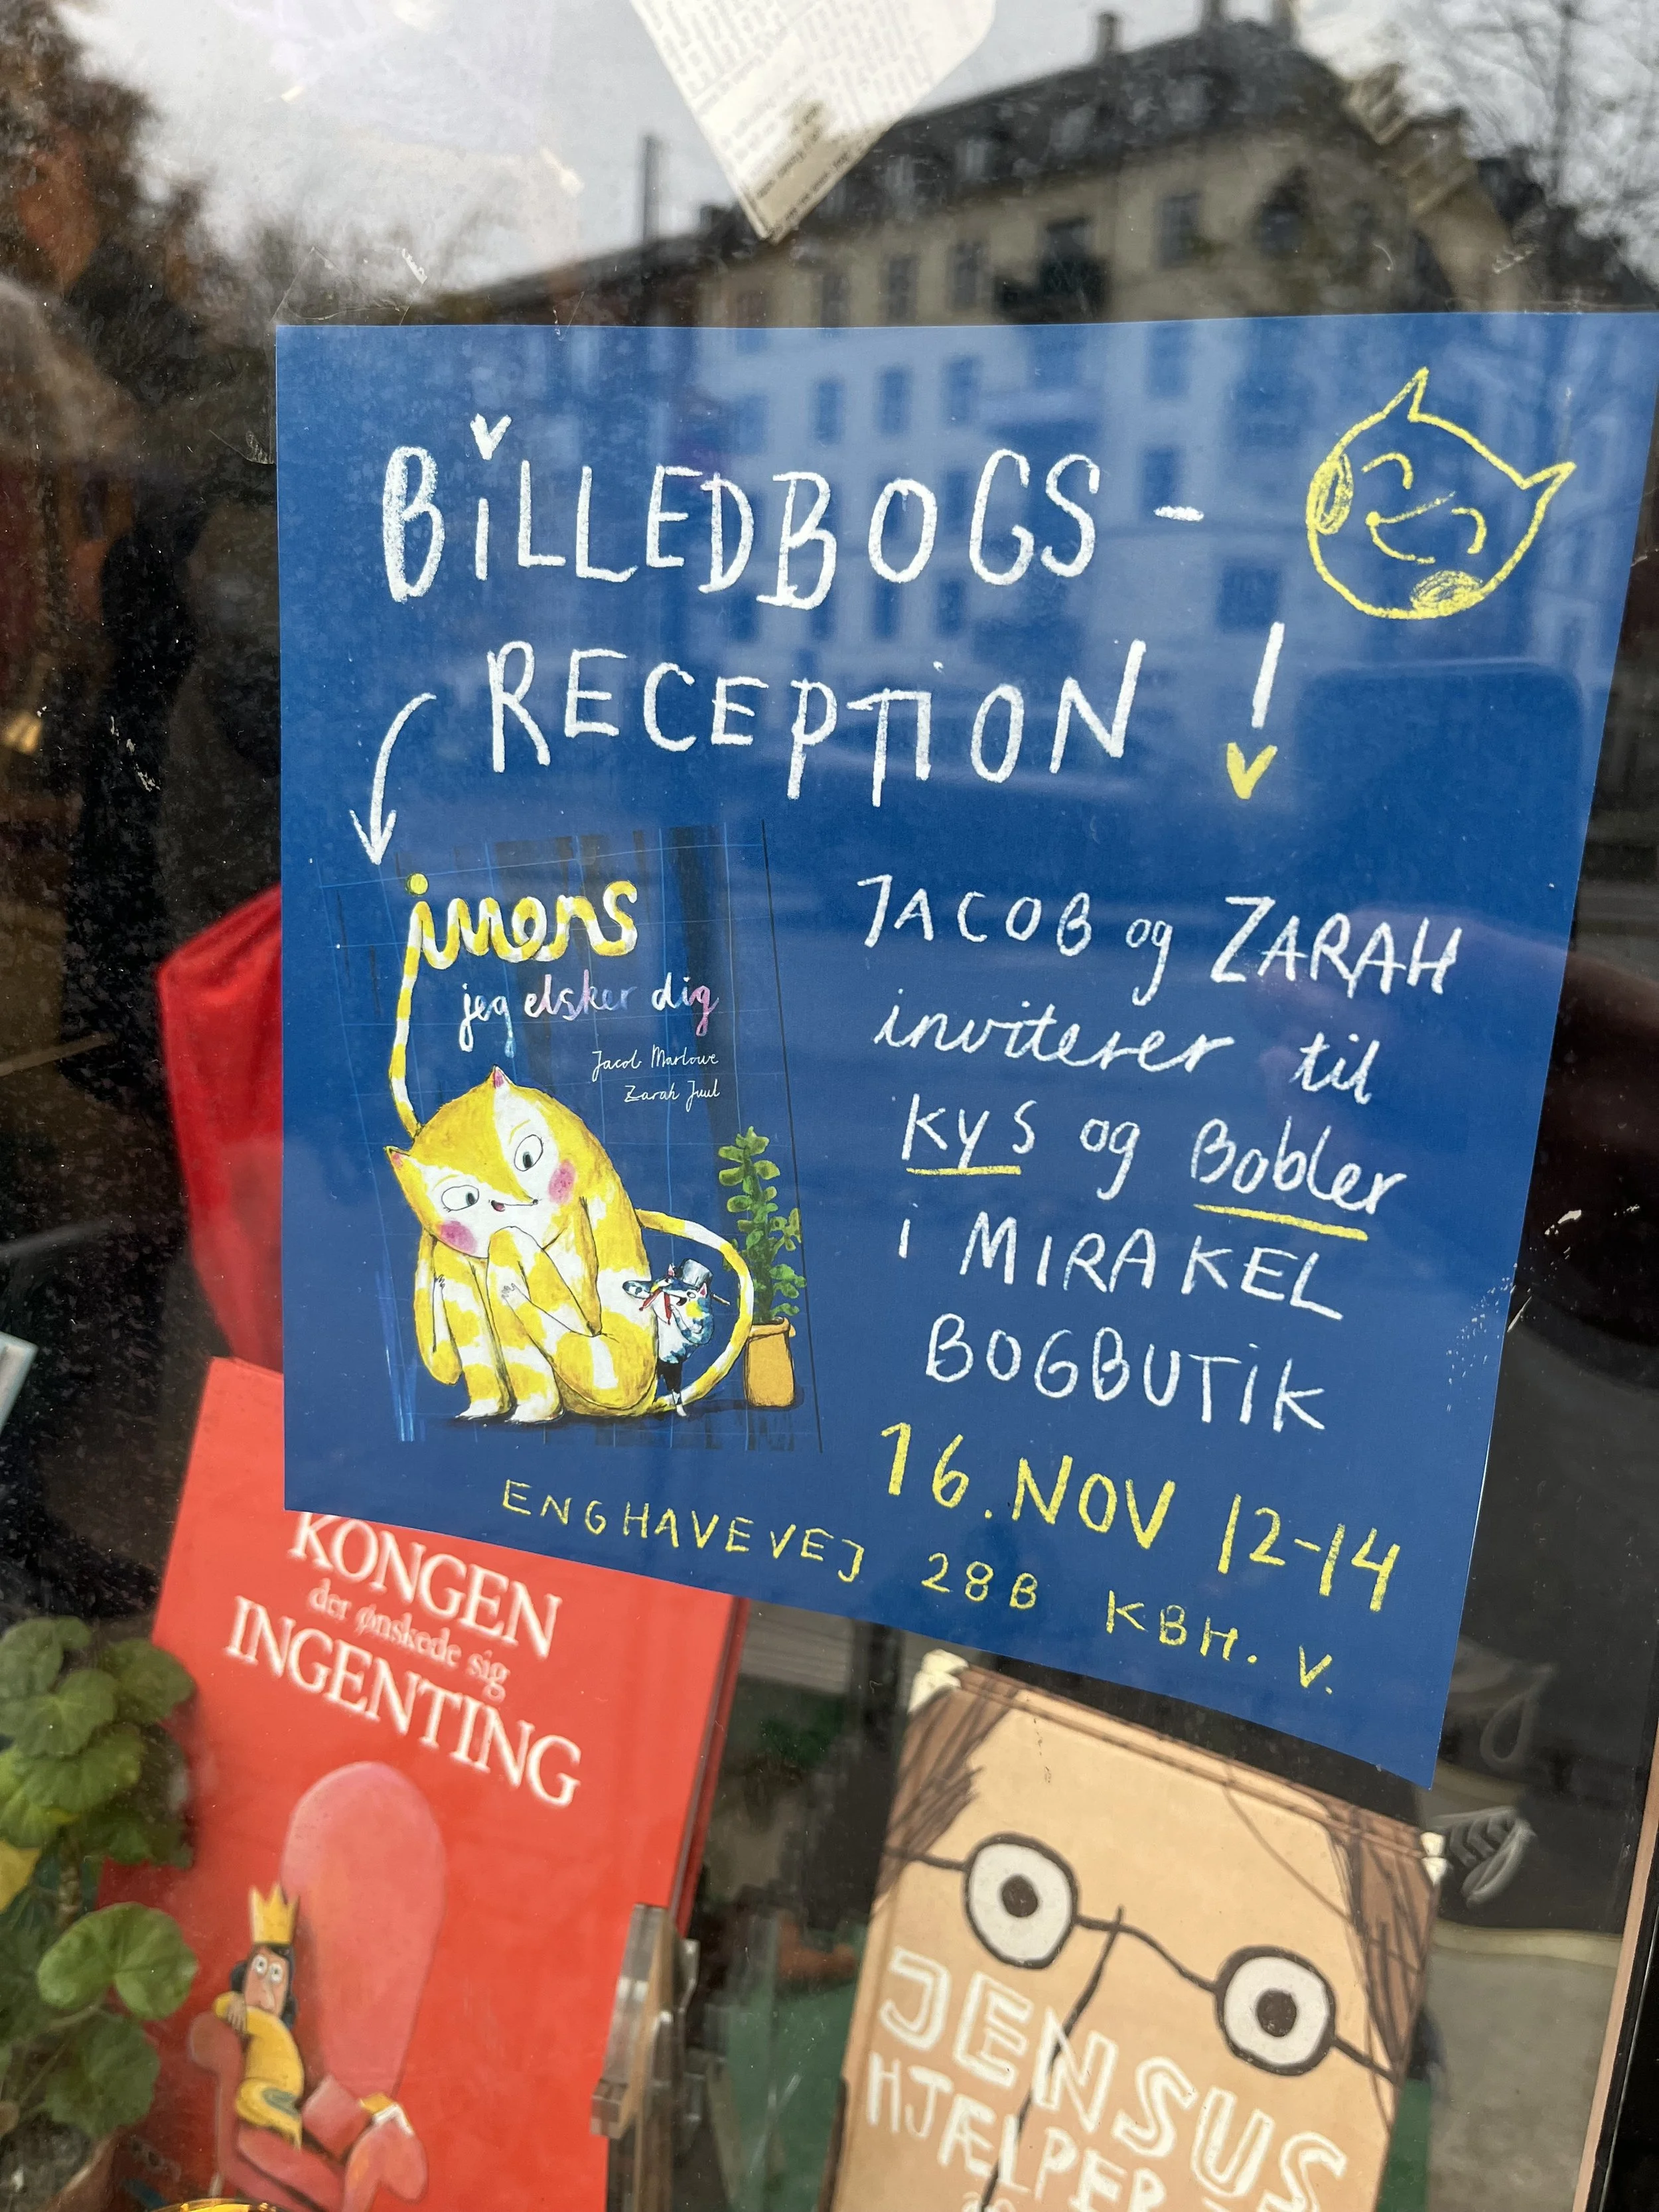 BILLEDBOGS-
RECEPTION!
imens
jeg elsker dig
Jacob Marlowe
Zarah Juul
JACOB og ZARAH
inviterer til
KYS og Bobler
i MIRAKEL
BOGBUTIK
16. NOV 12-14
ENGHAVEVEJ 28B KBH. V.
KONGEN
der ønskede sig
INGENTING
JENSUS
HJÆLPER